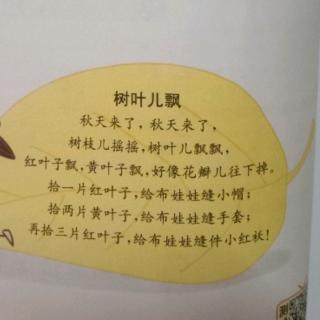 树叶儿飘
秋天来了，秋天来了，
树枝儿摇摇，树叶儿飘飘，
红叶子飘，黄叶子飘，好像花瓣儿往下掉。
拾一片红叶子，给布娃娃缝小帽；
拾两片黄叶子，给布娃娃缝手套；
再拾三片红叶子，给布娃娃缝件小红袄！
测